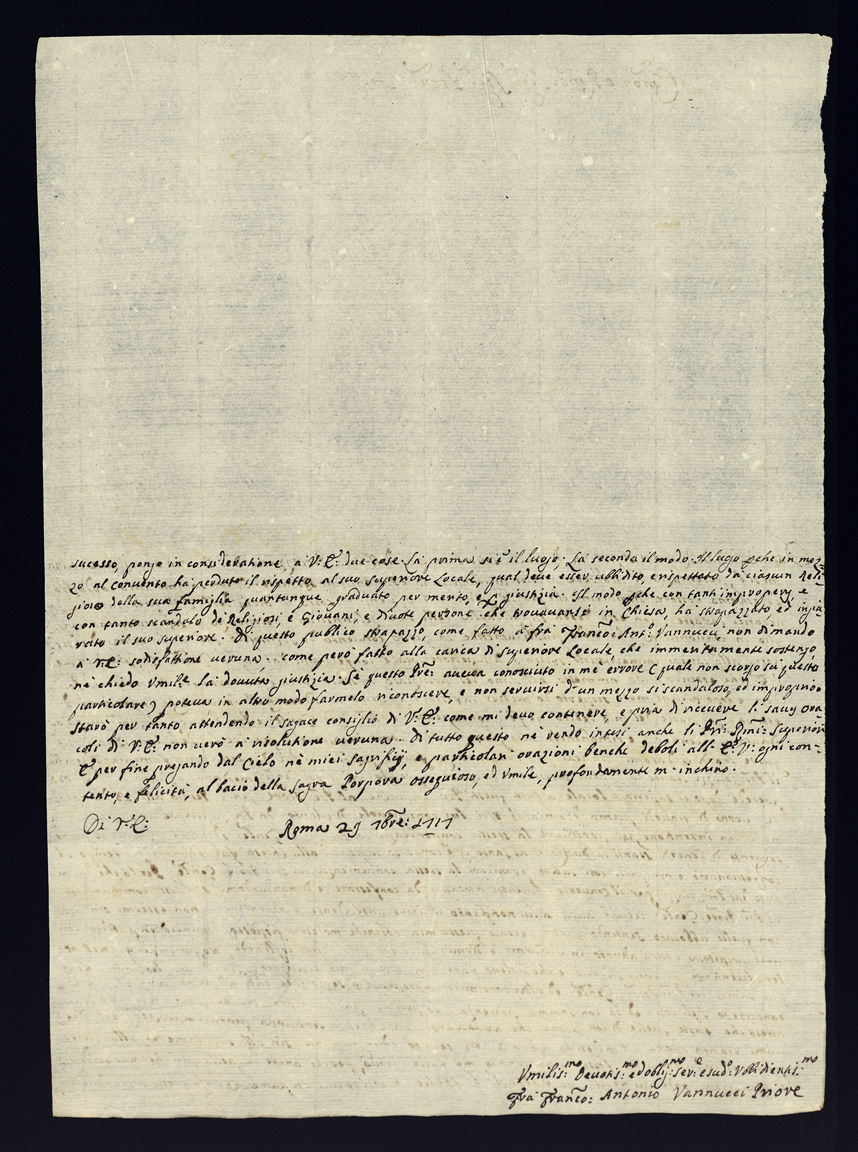 sucesso, pongo in consideratione a V: E: due cose. La prima si è il luogo. La seconda il modo. Il luogo perche in mez-
zo al convento ha perduto il rispetto al suo Superiore Locale, qual deve esser ubbidito, e rispettato da ciascun Reli-
gioso della sua famiglia quantunque graduato per merito, e giustizia. Il modo perche con tanti improperij, e
con tanto scandalo de Religiosi, e Giovani, e divote persone che trovavansi in Chiesa, ha strapazzato, ed ingiu-
riato il suo superiore. Di questo publico strapazzo, come fatto a frà Franco: Anto: Vannucci, non dimando
a V: E: sodisfattione veruna. come però fatto alla carica di Superiore Locale, che immeritamente sostengo,
nè chiedo Vmile La dovuta giustizia. Se questo Pre: aveva conosciuto in mè errore (quale non scorgo sù questo
particolare) poteva in altro modo farmelo riconoscere, e non servirsi d'un mezzo sì scandaloso, ed improprio.
Starò per tanto attendendo il sagace consiglio di V: E: come mi devo contenere, e pria di ricevere li savij ora-
coli di V: E: non verò a risolutione veruna. Di tutto questo nè rendo intesi anche li Pri: Rmi: Superiori
E per fine pregando dal Cielo nè miei Sagrificij, e particolari orazioni benche deboli all' E: V: ogni con-
tento, e felicità, al bacio della Sagra Porpora ossequioso, ed Vmile, profondamente m' inchino.
Di V: E:
Roma 29 9bre: 1717
Vmilis:mo Devotis:mo ed oblig:mo ser:e e sud:o Vbbidientis:mo
Frà Franco: Antonio Vannucci Priore